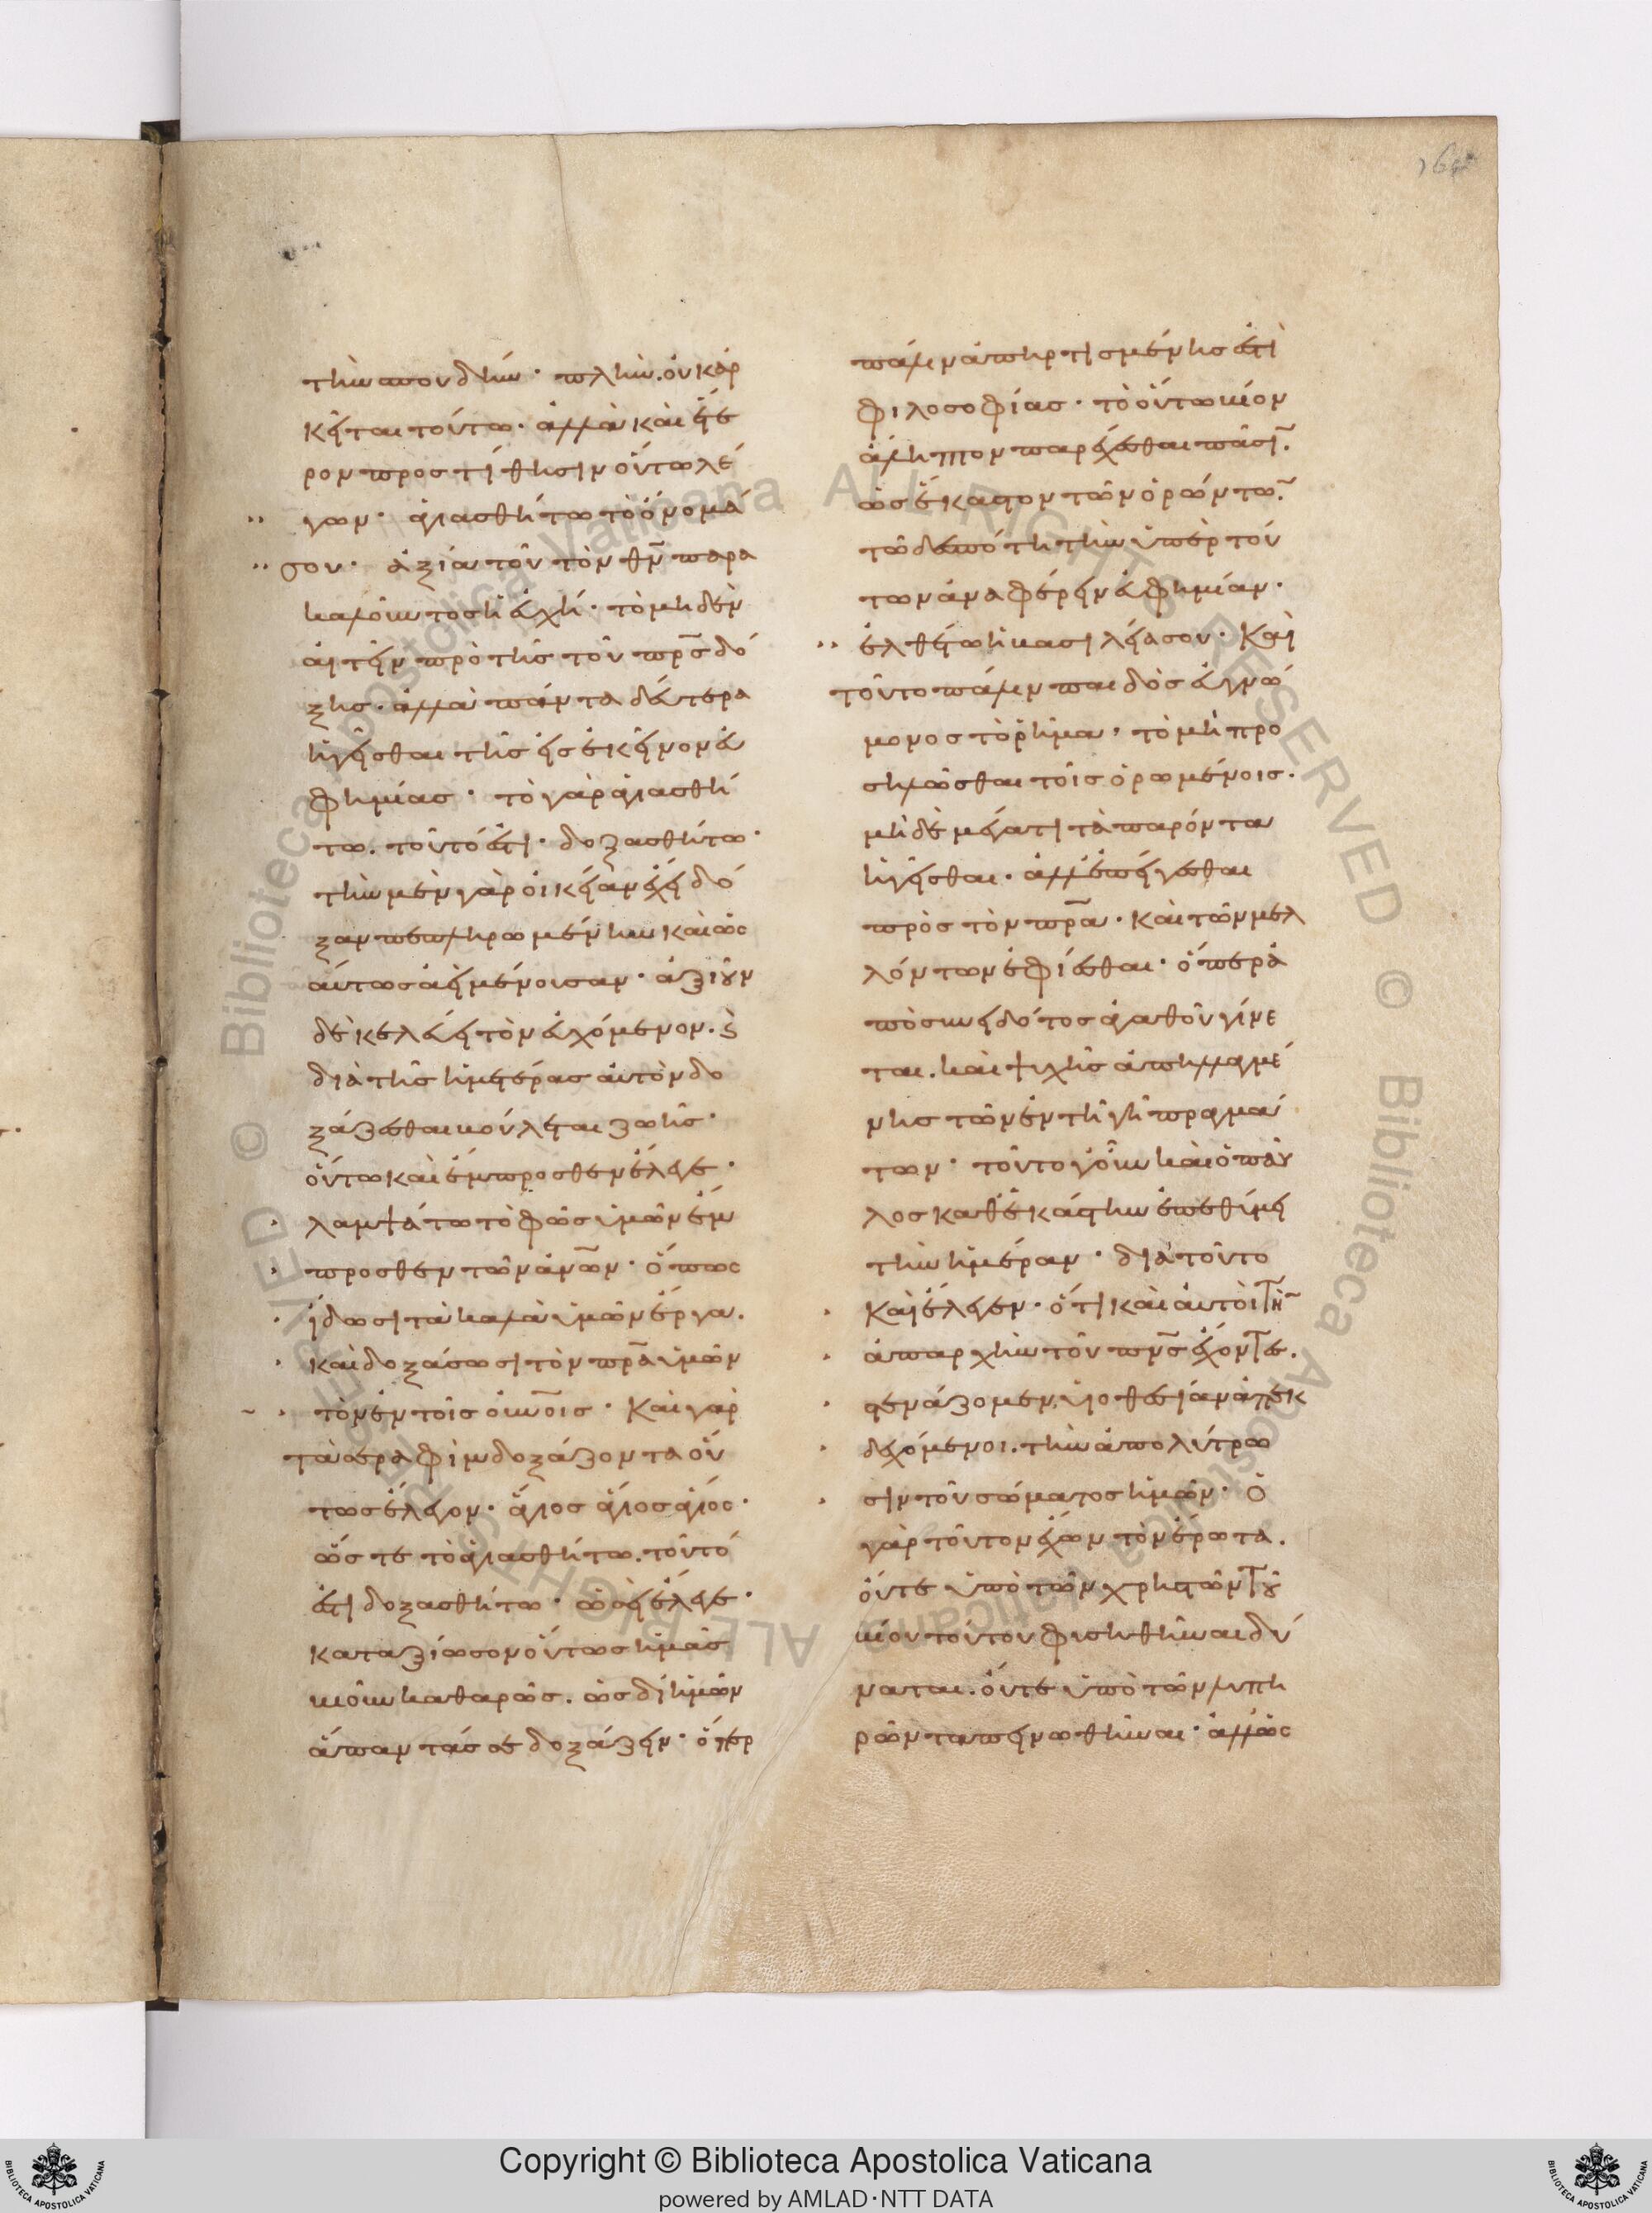 164
τὴν σπουδήν· πλὴν οὐκ ἀρ
κεῖται τούτω· ἀλλὰ καὶ ἕτε
ρον προστίθησιν οὕτω λέ
γων· ἁγιασθήτω τὸ ὄνομά
σου· ἀξία τοῦ τὸν θν̅ πατέρα
καλοῦντος ἡ εὐχή· τὸ μηδὲν
αἰτεῖν πρὸ τῆς τοῦ πρ̅ς δό
ξης· ἀλλὰ πάντα δεύτερα
ἡγεῖσθαι τῆς εἰς ἐκεῖνον εὐ
φημίας· τὸ γὰρ ἁγιασθή
τω. τοῦτό ἐστι· δοξασθήτω·
τὴν μὲν γὰρ οἰκείαν ἔχει δό
ξαν πεπληρωμένην καὶ ὡς
αύτως ἀεὶ μένουσαν· ἀξιοῦν
δὲ κελεύει τὸν εὐχόμενον. καὶ
διὰ τῆς ἡμετέρας αὐτὸν δο
ξάζεσθαι βούλεται ζωῆς·
οὕτω καὶ ἔμπροσθεν ἔλεγε·
λαμψάτω τὸ φῶς ὑμῶν ἔμ
προσθεν τῶν ἀν̅ων· ὅπως
ἴδωσι τὰ καλὰ ὑμῶν ἔργα.
καὶ δοξάσωσι τὸν πρ̅α ὑμῶν
τὸν ἐν τοῖς οὐν̅οις· Καὶ γὰρ
τὰ σεραφὶμ δοξάζοντα οὕ
τως ἔλεγον· ἅγιος ἅγιος ἅγιος·
ὥστε τὸ ἁγιασθήτω. τοῦτό
ἐστι δοξασθήτω· ὡσεὶ ἔλεγε·
καταξίωσον οὕτως ἡμᾶς
βιοῦν καθαρῶς. ὡς δι ἡμῶν
ἅπαντάς σε δοξάζειν· ὅπερ
πάλιν ἀπηρτισμένης ἐστὶ
φιλοσοφίας· τὸ οὕτω βίον
ἄληπτον παρέχεσθαι πᾶσι̅.
ὡς ἕκαστον τῶν ὁρώντω̅.
τῶ δεσπότη τὴν ὑπὲρ τού
των ἀναφέρειν εὐφημίαν·
ἐλθέτω ἡ βασιλεία σου· Καὶ
τοῦτο πάλιν παιδὸς εὐγνώ
μονος τὸ ῥῆμα, τὸ μὴ προ
σηλῶσθαι τοῖς ὁρωμένοις·
μηδὲ μέγα τι τὰ παρόντα
ἡγεῖσθαι· ἀλλ' ἐπείγεσθαι
πρὸς τὸν πρ̅α· καὶ τῶν μελ
λόντων ἐφίεσθαι· ὅπερ ἀ
πὸ συνειδότος ἀγαθοῦ γίνε
ται. καὶ ψυχῆς ἀπηλλαγμέ
νης τῶν ἐν τῇ γῇ πραγμά
των· τοῦτο γοῦν καὶ ὁ παῦ
λος καθ' ἑκάστην ἐπεθύμει
τὴν ἡμέραν· διὰ τοῦτο
καὶ ἔλεγεν· ὅτι καὶ αὐτοὶ τὴν
ἀπαρχὴν τοῦ πν̅ς ἔχοντες.
στενάζομεν, υἱοθεσίαν ἀπεκ
δεχόμενοι. τὴν ἀπολύτρω
σιν τοῦ σώματος ἡμῶν· Ὁ
γὰρ τοῦτον ἔχων τὸν ἔρωτα.
οὔτε ὑπὸ τῶν χρηστῶν τοῦ
βίου τούτου φυσηθῆναι δύ
ναται. οὔτε ὑπὸ τῶν λυπη
ρῶν ταπεινωθῆναι· ἀλλ' ὡς
Copyright © Biblioteca Apostolica Vaticana
powered by AMLAD·NTT DATA